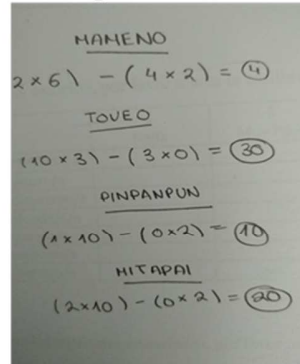 MAMENO
2 x 6) - (4 x 2) = 4
TOVEO
(10 x 3) - (3 x 0) = 30
PINPANPUN
(1 x 10) - (0 x 2) = 10
MITAPAI
(2 x 10) - (0 x 2) = 20